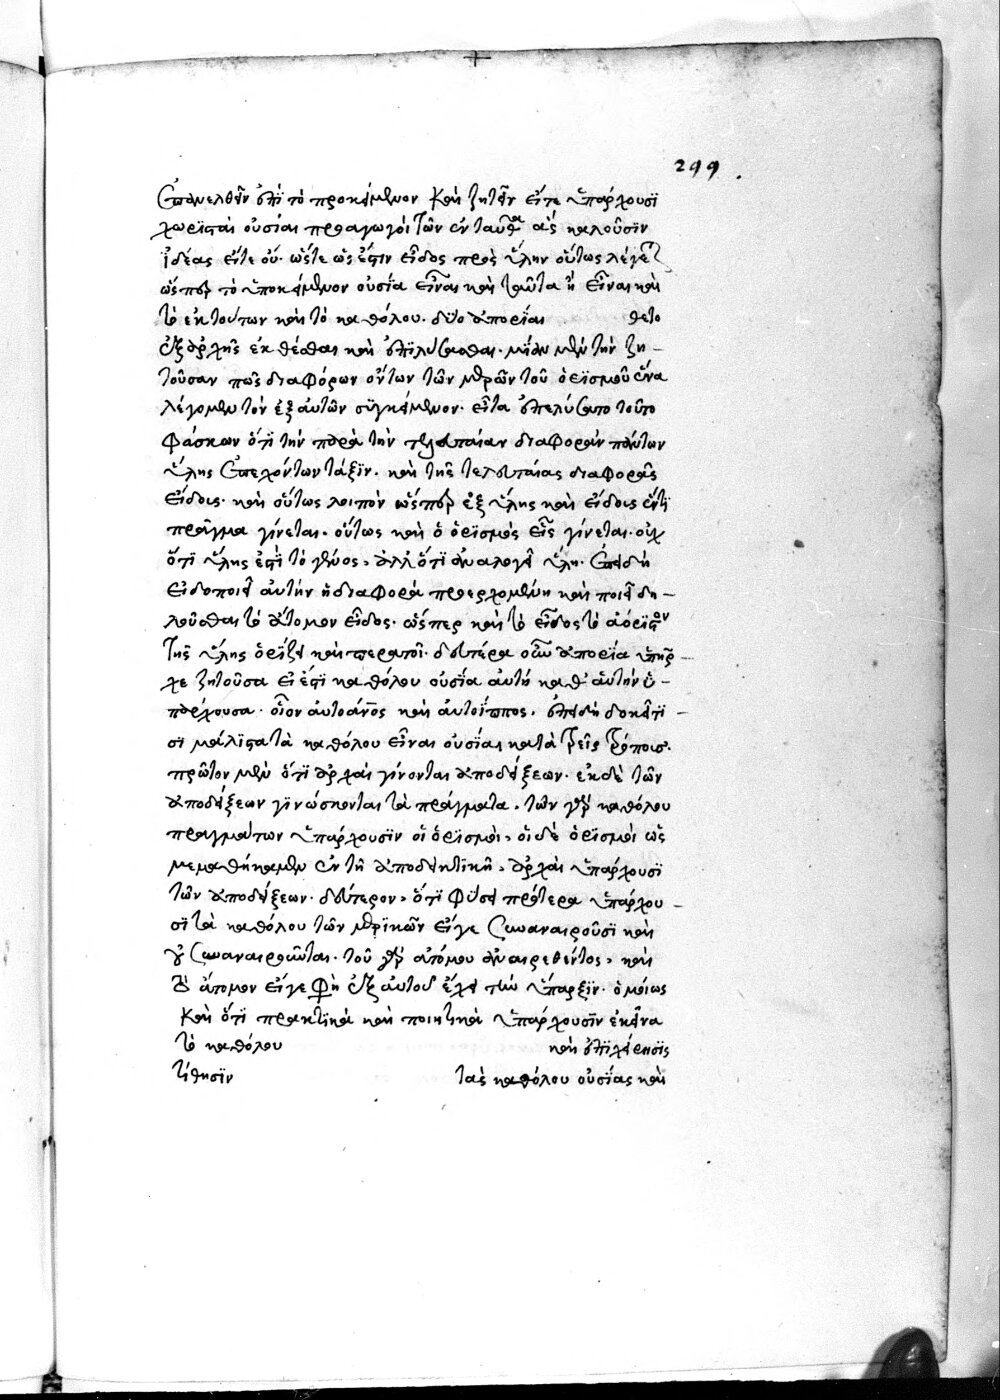 299
ἐπανελθεῖν ἐπὶ τὸ προκείμενον καὶ ζητεῖν εἴτε ὑπάρχουσϊ
χωρϊσταὶ οὐσίαι παραγωγοὶ τῶν ἐνταῦθα ἃς καλοῦσϊν
ἰδέας εἴτε οὔ· ὥστε ὡς ἔστιν εἶδος πρὸς ὕλην οὕτως λέγεται
ὥσπερ τὸ ὑποκείμενον οὐσία εἶναι καὶ ταῦτα ἢ εἶναι καὶ
τὸ ἐκ τούτων καὶ τὸ καθόλου· δύο ἀπορίαι θετο
ἐξ ἀρχῆς ἐκθέσθαι καὶ ἐπϊλύσασθαι· μίαν μὲν τὴν ζη-
τοῦσαν πῶς διαφόρων ὄντων τῶν μερῶν τοῦ ὁρϊσμοῦ ἕνα
λέγομεν τὸν ἐξ αὐτῶν συγκείμενον· εἶτα ἐπελύσατο τοῦτο
φάσκων ὅτϊ τὴν παρὰ τὴν τελευταίαν διαφορὰν πάντων
ὕλης ἐπεχόντων τάξϊν· καὶ τῆς τελευταίας διαφορᾶς
εἴδους· καὶ οὕτως λοιπὸν ὥσπερ ἐξ ὕλης καὶ εἴδους ἕν τϊ
πρᾶγμα γίνεται· οὕτως καὶ ὁ ὁρϊσμὸς εἷς γίνεται· οὐχ
ὅτϊ ὕλης ἐστὶ τὸ γένος, ἀλλ' ὅτϊ ἀναλογεῖ ὕλη· ἐπειδὴ
εἰδοποιεῖ αὐτὴν ἡ διαφορὰ προερχομένη καὶ ποιεῖ δη-
λοῦσθαι τὸ ἄτομον εἶδος· ὥσπερ καὶ τὸ εἶδος τὸ ἀόρϊστον
τῆς ὕλης ὁρίζει καὶ περατοῖ· δευτέρα οὖν ἀπορία ὑπῆρ-
χε ζητοῦσα εἰ ἐστὶ καθόλου οὐσία αὐτὴ καθ' αὑτὴν ὑ-
πάρχουσα· οἷον αὐτοάνος καὶ αὐτοΐππος· ἐπειδὴ δοκεῖ τϊ-
σϊ μάλϊστα τὰ καθόλου εἶναι οὐσίας κατὰ τρεῖς τρόπους·
πρῶτον μὲν ὅτϊ ἀρχαὶ γίνονται ἀποδείξεων· ἐκ δὲ τῶν
ἀποδείξεων γϊνώσκονται τὰ πράγματα· τῶν γὰρ καθόλου
πραγμάτων ὑπάρχουσϊν οἱ ὁρϊσμοὶ, οἱ δὲ ὁρϊσμοὶ ὡς
μεμαθήκαμεν ἐν τῇ ἀποδεικτϊκῇ, ἀρχαὶ ὑπάρχουσϊ
τῶν ἀποδείξεων· δεύτερον, ὅτϊ φύσει πρότερα ὑπάρχου-
σϊ τὰ καθόλου τῶν μερϊκῶν εἴγε συναναιροῦσϊ καὶ
οὐ συναναιροῦνται· τοῦ γὰρ ἀτόμου ἀναιρεθέντος, καὶ
τὸ ἄτομον εἴγε φη ἐξ αὐτοῦ ἔχει τὴν ὕπαρξϊν· ὁμοίως
καὶ ὅτϊ πρακτϊκὰ καὶ ποιητϊκὰ ὑπάρχουσϊν ἐκεῖνα
τὸ καθόλου καὶ ἐπϊχείρησϊς
τίθησϊν τὰς καθόλου οὐσίας καὶ